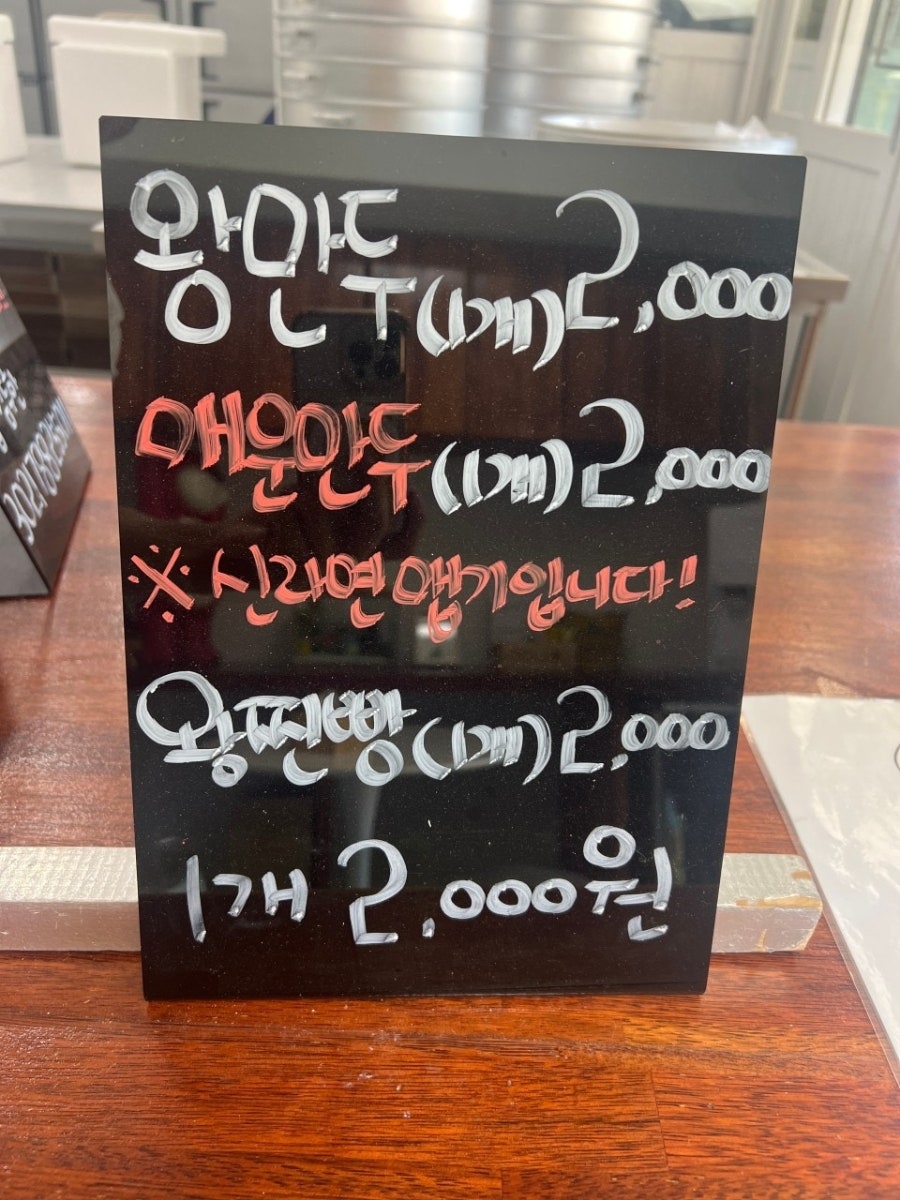 왕만두(1개)2,000
매운만두(1개)2,000
※신라면맵기입니다!
왕찐빵(1개)2,000
1개 2,000원